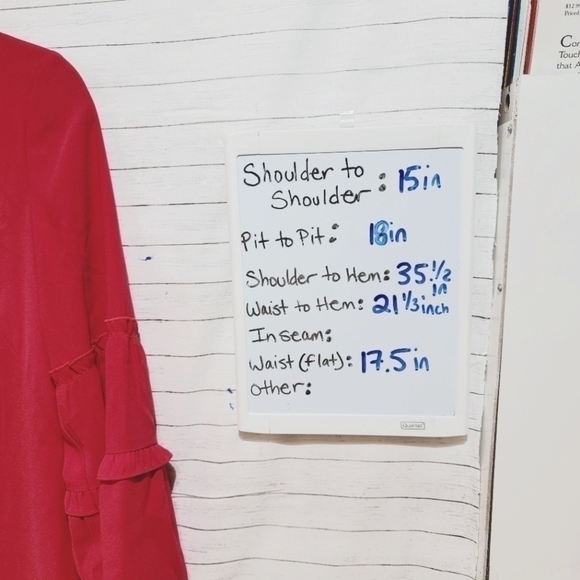 Shoulder to
Shoulder : 15in
Pit to Pit: 18in
Shoulder to Hem: 35 1/2
in
Waist to Hem: 21 1/3 inch
Inseam:
Waist (flat): 17.5 in
Other:
Quartet
Touch
that A